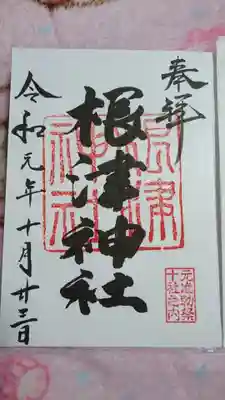 奉拝
根津神社
令和元年十月廿三日
元准勅祭
十社之内